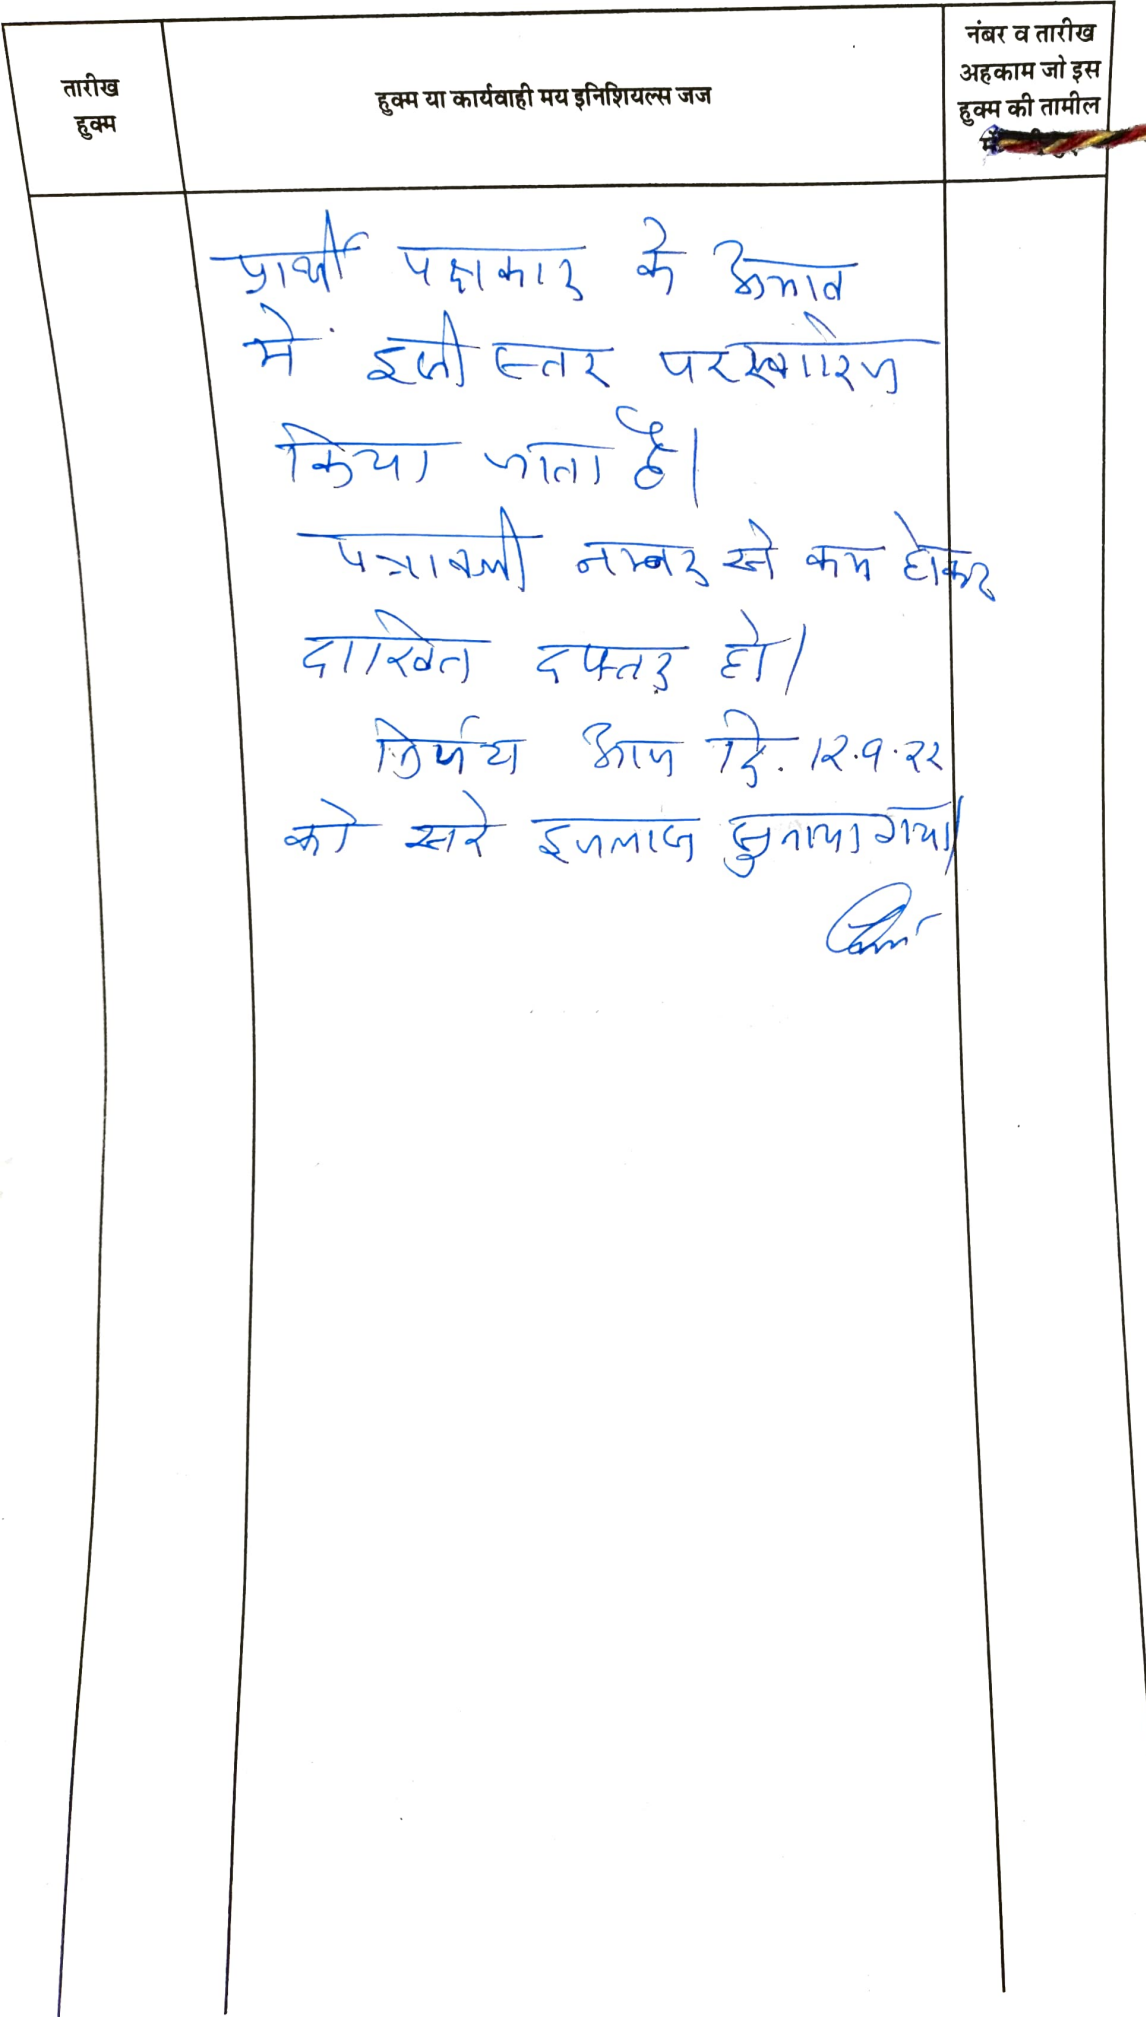 तारीख
हुक्म
हुक्म या कार्यवाही मय इनिशियल्स जज
नंबर व तारीख
अहकाम जो इस
हुक्म की तामील
में
प्रार्थी पक्षकार के अभाव
में इसी स्तर पर खारिज
किया जाता है।
पत्रावली नम्बर से कम होकर
दाखिल दफ्तर हो।
निर्णय आज दि. 12.9.22
को सरे इजलास सुनाया गया।